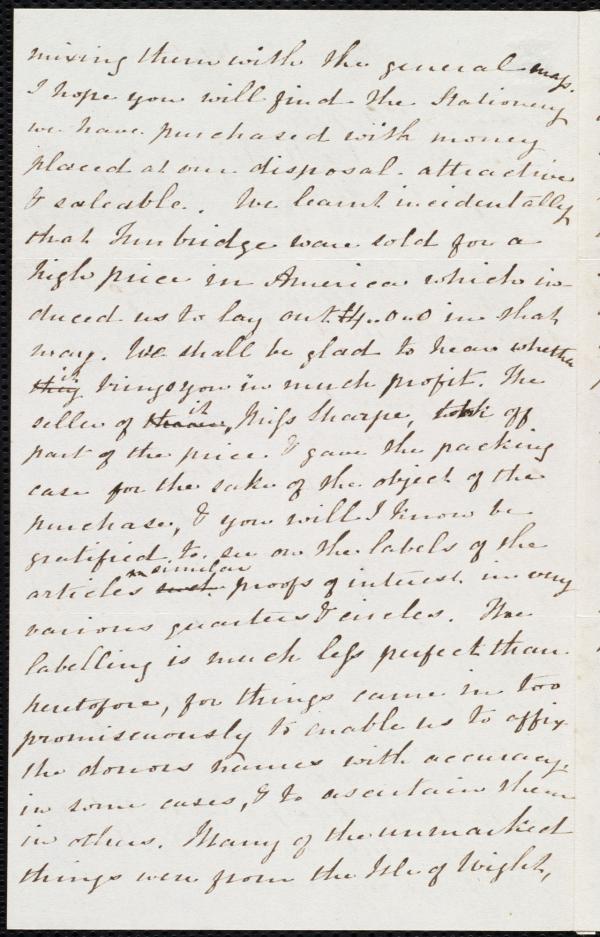 mixing them with the general mass.
I hope you will find the Stationery
we have purchased with money
placed at our disposal attractive
& saleable. We learnt incidentally
that Tunbridge ware sold for a
high price in America which in-
duced us to lay out £4..0..0 in that
way. We shall be glad to hear whether
they it brings you in much profit. The
seller of it, Miss Sharpe, took off
part of the price & gave the packing
case for the sake of the object of the
purchase, & you will I know be
gratified to see on the labels of the
articles similar proofs of interest in very
various quarters & circles. The
labelling is much less perfect than
heretofore, for things came in too
promiscuously to enable us to affix
the donors names with accuracy
in some cases, & to ascertain them
in others. Many of the unmarked
things were from the Isle of Wight,